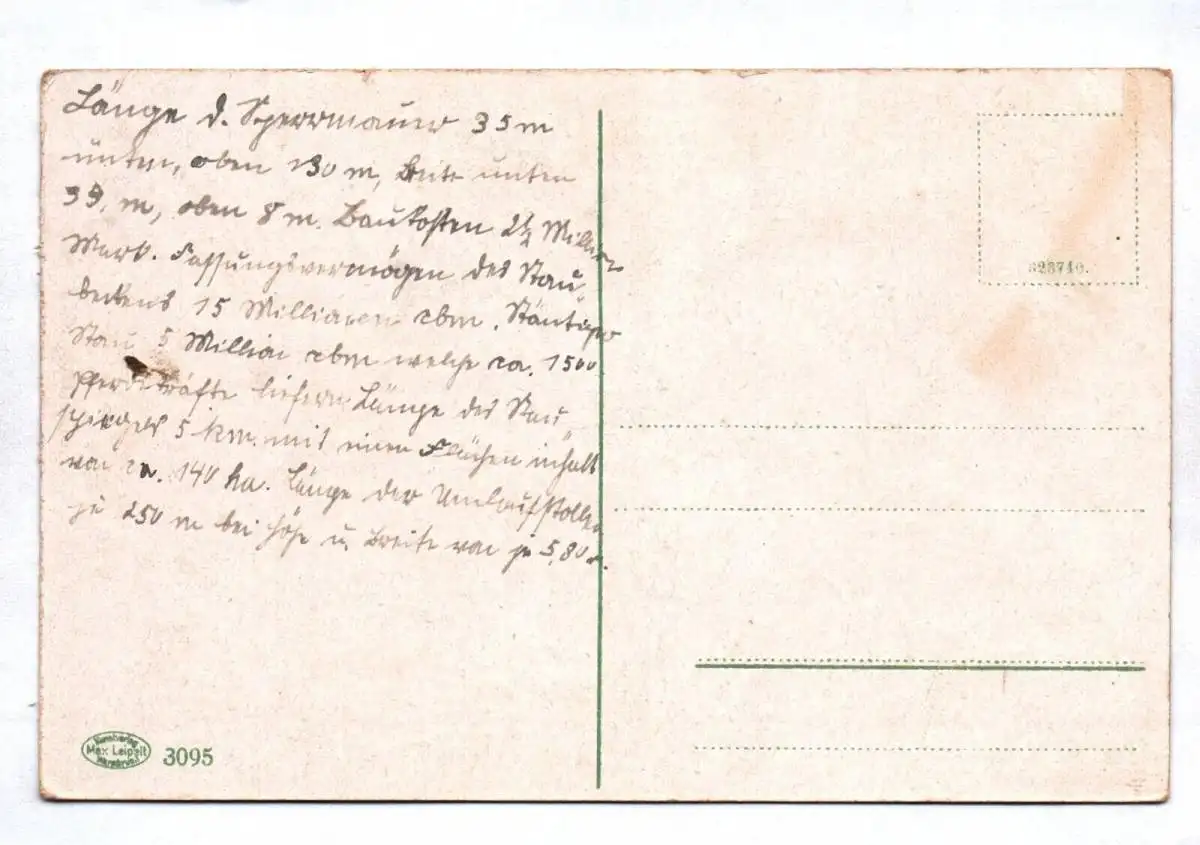 Länge d. Sperrmauer 35 m
unten, oben 130 m, Breite unten
39, m, oben 8 m. Baukosten 2½ Million
Mark. Fassungsvermögen des Stau„
beckens 15 Millionen cbm. Ständiger
Stau 5 Million cbm welche ca. 1500
Pferdekräfte liefern Länge des Stau„
spiegels 5 km. mit einen Flächeninhalt
von ca. 140 ha. Länge der Umlaufstollen
je 250 m bei Höhe u. Breite von je 5,80 m.
Max Leipelt
3095